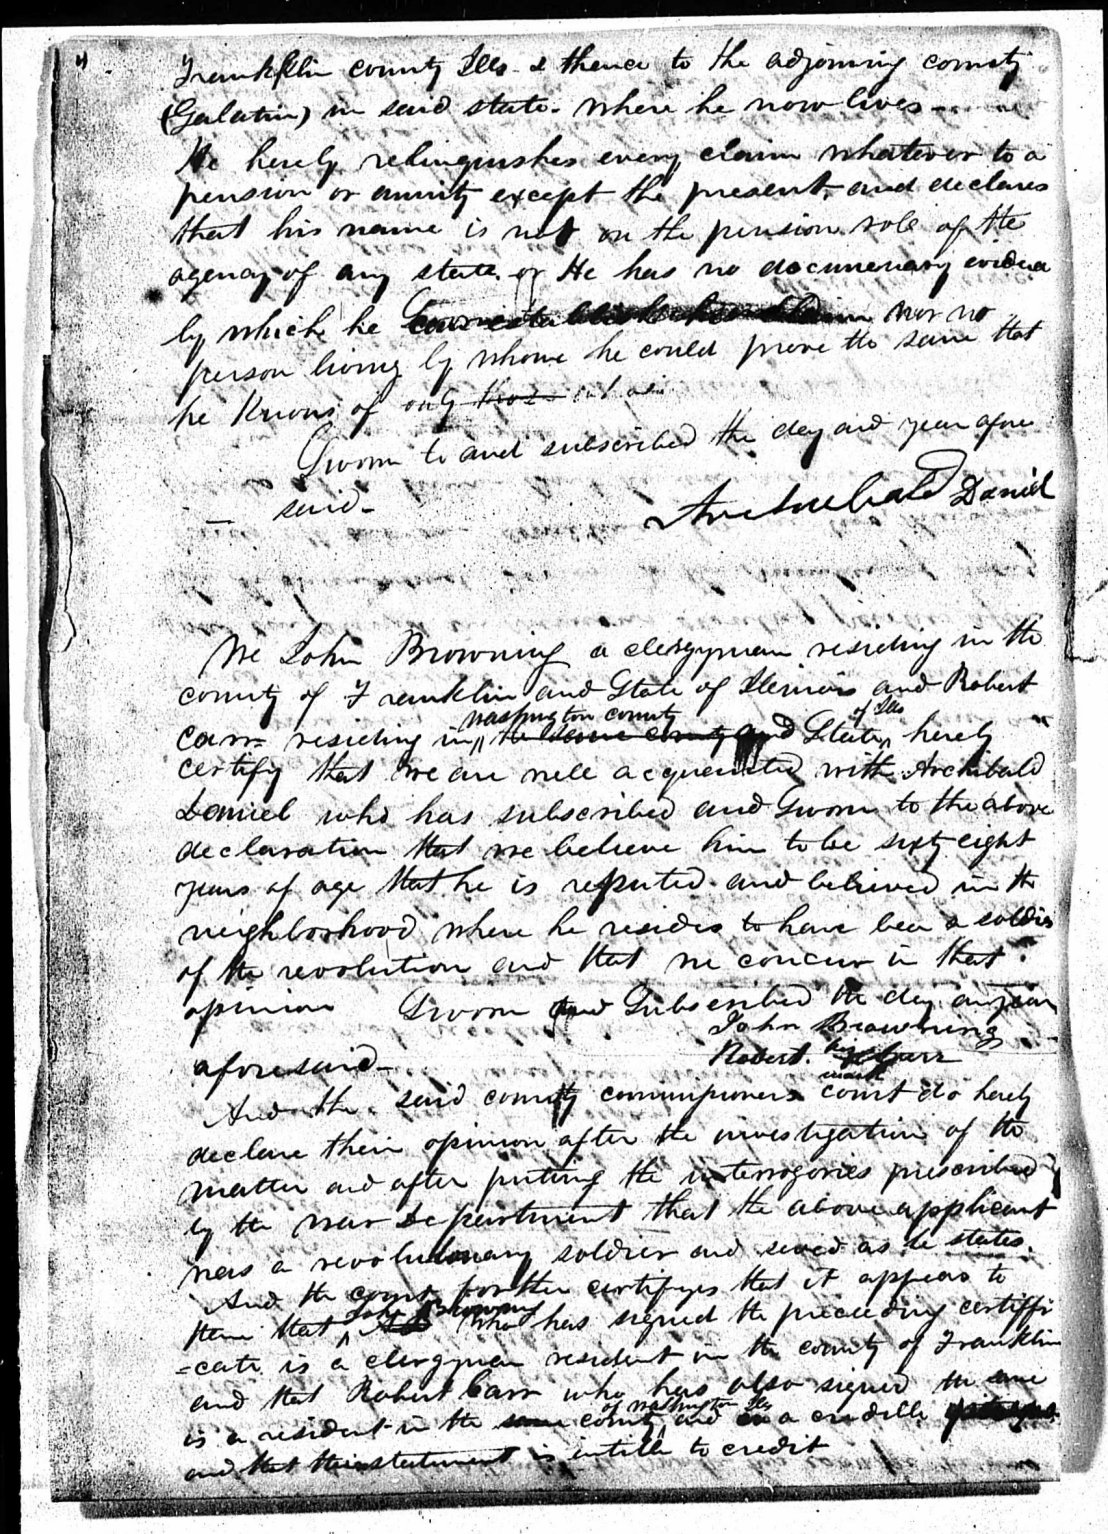 Franklin county Ills & thence to the adjoining county
(Galatin) in said state. where he now lives
He herely relinquishes every claim whatever to a
pension or annity except the present. and declares
that his name is not on the pension role of the
agency of any state. or He has no documenary evidence
by which he nor no
person living by whome he could prove the same that
he knows of only
Sworn to and subscribed the day and year afore
said
Archibald Daniel
We John Browning a clergyman residing in the
county of Franklin and State of Illinois and Robert
washington county of Ills
Carr residing in the same county and State hereby
certify that we are well acquainted with Archibald
Daniel who has subscribed and sworn to the above
declaration that we believe him to be sixty eight
years of age that he is reputed and believed in the
neighborhood where he resides to have been a soldier
of the revolution and that we concur in that
opinion Sworn and Subscribed the day and year
John Browning
aforesaid Robert his Carr
mark
And the said county commissioners court do herely
declare their opinion after the investigation of the
matter and after putting the interrogories prescribed
by the war Department that the above applicant
was a revolutionary soldier and served as he states.
And the court further certifyes that it appears to
John Browning
them that who has signed the preceeding certiffi
=cate is a clergyman resident in the county of Franklin
and that Robert Carr who has also signed the same
of washington Ills
is a resident in the same county and is a credible
and that their statement is intitle to credit